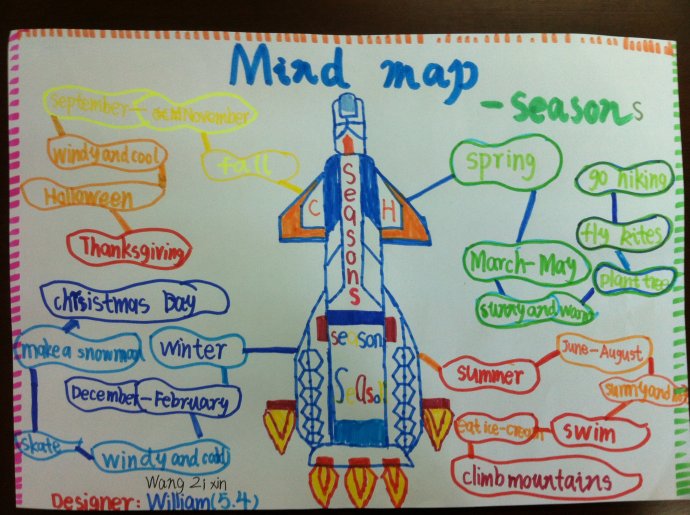 Mind map
-seasons
September-
November
fall
windy and cool
Halloween
Thanksgiving
C
H
Seasons
season
Season
spring
March-May
sunny and warm
plant tree
fly kites
go hiking
summer
June-August
sunny and hot
swim
eat ice-cream
climb mountains
winter
December-February
windy and cold
skate
make a snowman
chrisistmas Day
Wang Zi xin
Designer: William(5.4)